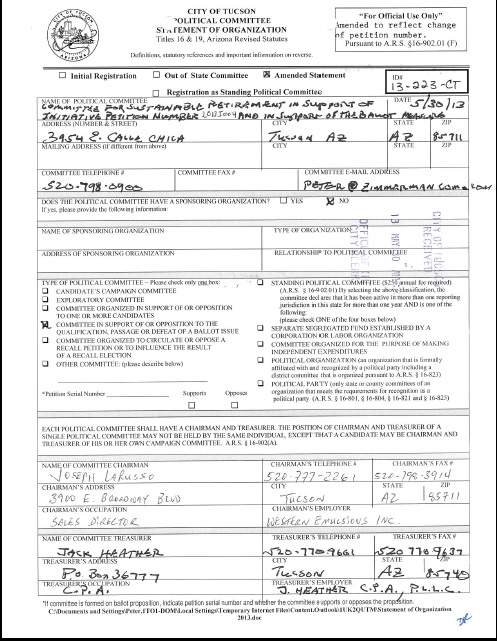 CITY OF TUCSON
POLITICAL COMMITTEE
STATEMENT OF ORGANIZATION
Titles 16 & 19, Arizona Revised Statutes
"For Official Use Only"
Amended to reflect change
of petition number.
Pursuant to A.R.S. §16-902.01 (F)
Definitions, statutory references and important information on reverse.
☐ Initial Registration ☐ Out of State Committee ☒ Amended Statement
☐ Registration as Standing Political Committee
ID#
13-223-CT
NAME OF POLITICAL COMMITTEE
COMMITTEE FOR SUSTAINABLE RETIREMENT IN SUPPORT OF
INITIATIVE PETITION NUMBER 2013-I004 AND IN SUPPORT OF THE BALLOT MEASURE
DATE 5/30/13
ADDRESS (NUMBER & STREET) CITY STATE ZIP
3954 E. CALLE CHICA TUCSON AZ AZ 85711
MAILING ADDRESS (if different from above) CITY STATE ZIP
COMMITTEE TELEPHONE # COMMITTEE FAX # COMMITTEE E-MAIL ADDRESS
520-798-0900 PETER@ZIMMERMAN COM.COM
DOES THE POLITICAL COMMITTEE HAVE A SPONSORING ORGANIZATION? ☐ YES ☒ NO
If yes, please provide the following information:
NAME OF SPONSORING ORGANIZATION TYPE OF ORGANIZATION
ADDRESS OF SPONSORING ORGANIZATION RELATIONSHIP TO POLITICAL COMMITTEE
TYPE OF POLITICAL COMMITTEE – Please check only one box:
☐ CANDIDATE'S CAMPAIGN COMMITTEE
☐ EXPLORATORY COMMITTEE
☐ COMMITTEE ORGANIZED IN SUPPORT OF OR OPPOSITION
TO ONE OR MORE CANDIDATES
☒ COMMITTEE IN SUPPORT OF OR OPPOSITION TO THE
QUALIFICATION, PASSAGE OR DEFEAT OF A BALLOT ISSUE
☐ COMMITTEE ORGANIZED TO CIRCULATE OR OPPOSE A
RECALL PETITION OR TO INFLUENCE THE RESULT
OF A RECALL ELECTION
☐ OTHER COMMITTEE: (please describe below)
*Petition Serial Number Supports Opposes
☐ ☐
☐ STANDING POLITICAL COMMITTEE ($250 annual fee required)
(A.R.S. § 16-902.01) By selecting the above classification, the
committee declares that it has been active in more than one reporting
jurisdiction in this state for more than one year AND is one of the
following:
(please check ONE of the four boxes below)
☐ SEPARATE SEGREGATED FUND ESTABLISHED BY A
CORPORATION OR LABOR ORGANIZATION
☐ COMMITTEE ORGANIZED FOR THE PURPOSE OF MAKING
INDEPENDENT EXPENDITURES
☐ POLITICAL ORGANIZATION (an organization that is formally
affiliated with and recognized by a political party including a
district committee that is organized pursuant to A.R.S. § 16-823)
☐ POLITICAL PARTY (only state or county committees of an
organization that meets the requirements for recognition as a
political party (A.R.S. § 16-801, § 16-804, § 16-821 and § 16-825)
EACH POLITICAL COMMITTEE SHALL HAVE A CHAIRMAN AND TREASURER. THE POSITION OF CHAIRMAN AND TREASURER OF A
SINGLE POLITICAL COMMITTEE MAY NOT BE HELD BY THE SAME INDIVIDUAL, EXCEPT THAT A CANDIDATE MAY BE CHAIRMAN AND
TREASURER OF HIS OR HER OWN CAMPAIGN COMMITTEE. A.R.S. § 16-902(A).
NAME OF COMMITTEE CHAIRMAN CHAIRMAN'S TELEPHONE # CHAIRMAN'S FAX #
JOSEPH LARUSSO 520-777-2261 520-798-3914
CHAIRMAN'S ADDRESS CITY STATE ZIP
3900 E. BROADWAY BLVD TUCSON AZ 85711
CHAIRMAN'S OCCUPATION CHAIRMAN'S EMPLOYER
SALES DIRECTOR WESTERN EMULSIONS INC.
NAME OF COMMITTEE TREASURER TREASURER'S TELEPHONE # TREASURER'S FAX #
JACK HEATHER 520-770-9661 520 770 9637
TREASURER'S ADDRESS CITY STATE ZIP
P.O. BOX 36777 TUCSON AZ 85740
TREASURER'S OCCUPATION TREASURER'S EMPLOYER
C.P.A. J. HEATHER C.P.A., P.L.L.C.
*If committee is formed on ballot proposition, indicate petition serial number and whether the committee supports or opposes the proposition.